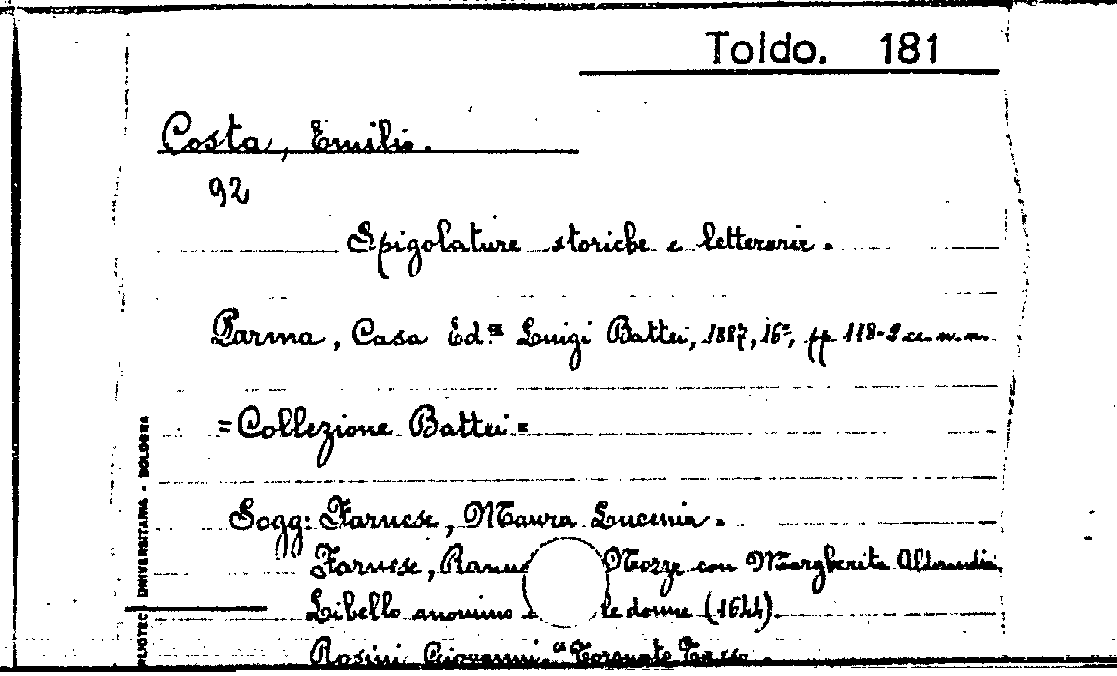 Toldo. 181
Costa, Emilio.
92
Spigolature storiche e letterarie.
Parma, Casa Ed.ce Luigi Battei, 1887, 16°, pp 118-2 cc. n. n.
=Collezione Battei=
Sogg: Farnese, Maura Lucenia.
Farnese, Ranuc Nozze con Margherita Aldrandin.
Libello anonimo le donne (1644)
Rosini Giovanni. Torquato Tasso.
BLIOTEC UNIVERSITARIA - BOLOGNA